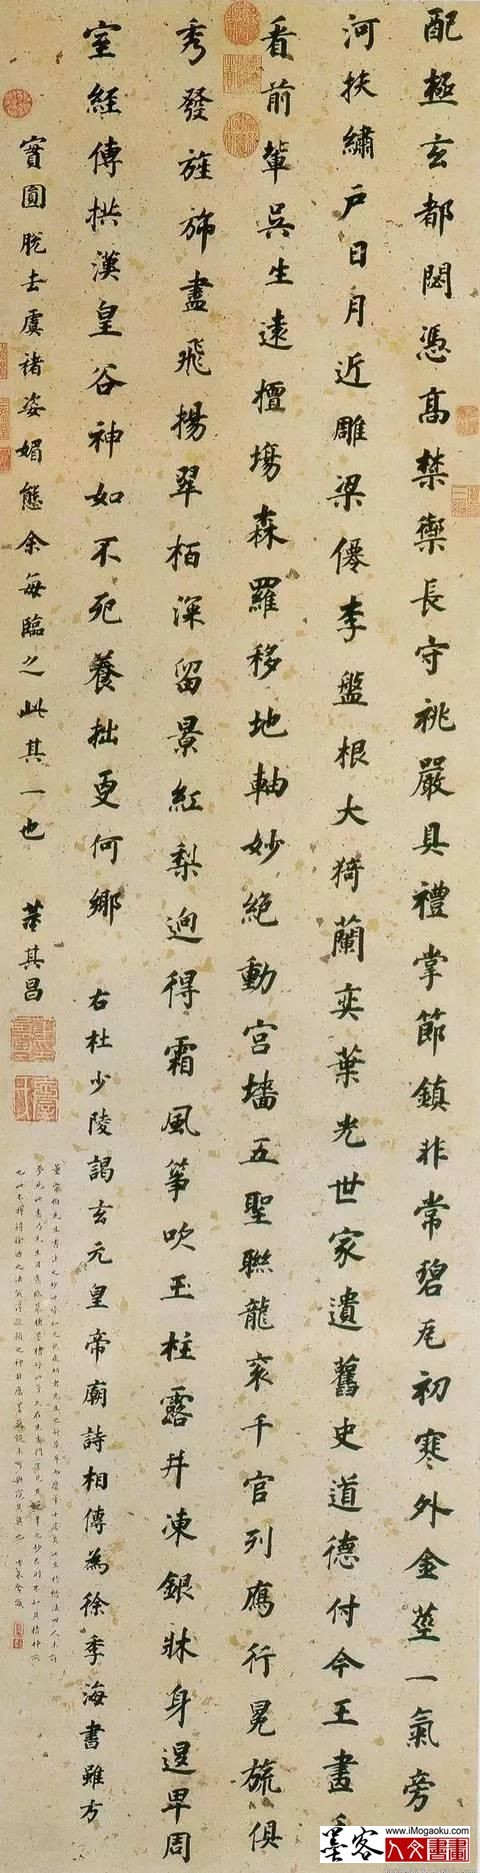 配極玄都閟憑高禁禦長守祧嚴具禮掌節鎮非常碧瓦初寒外金莖一氣旁
河扶繡戶日月近雕梁僊李盤根大猗蘭奕葉光世家遺舊史道德付今王畫
看前輩吳生遠擅場森羅移地軸妙絕動宮墻五聖聯龍袞千官列鴈行冕旒俱
秀發旌旆盡飛揚翠柏深留景紅梨迥得霜風箏吹玉柱露井凍銀牀身退卑周
室經傳拱漢皇谷神如不死養拙更何鄉 右杜少陵謁玄元皇帝廟詩相傳為徐季海書雖方
實圓脫去虞褚姿媚態余每臨之此其一也 董其昌
www.iMogaoku.com
墨客人文書畫